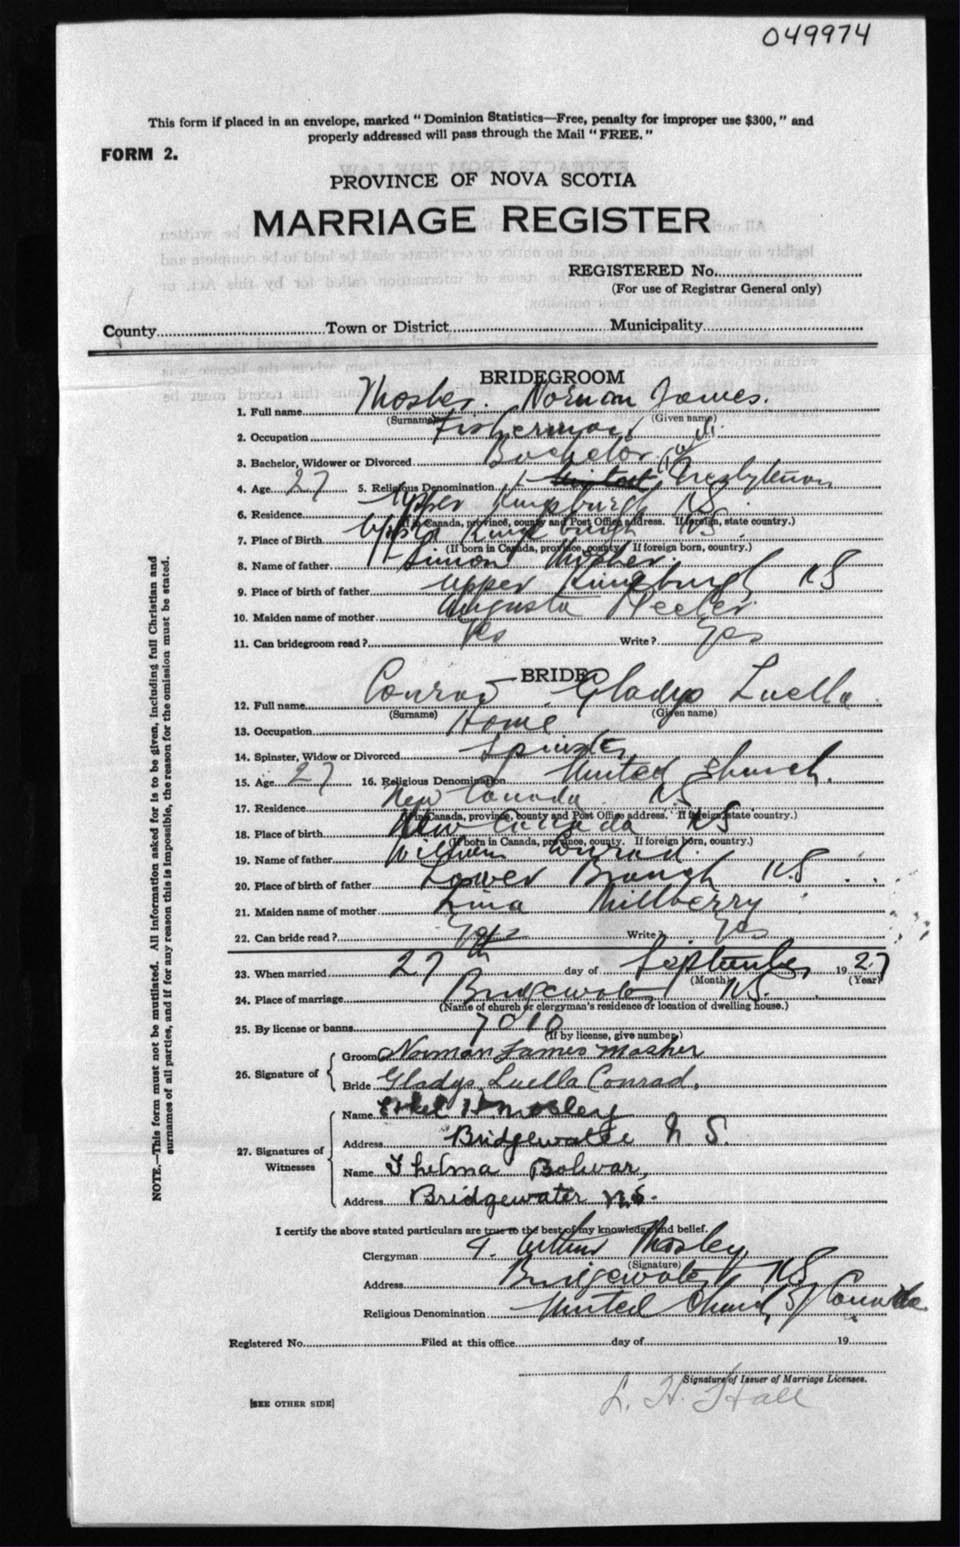 049974
This form if placed in an envelope, marked "Dominion Statistics—Free, penalty for improper use $300," and
properly addressed will pass through the Mail "FREE."
FORM 2.
PROVINCE OF NOVA SCOTIA
MARRIAGE REGISTER
REGISTERED No.
(For use of Registrar General only)
County Town or District Municipality
BRIDEGROOM
1. Full name Mosher Norman James.
(Surname) (Given name)
2. Occupation Fisherman
3. Bachelor, Widower or Divorced Bachelor
4. Age 27 5. Religious Denomination Presbyterian
6. Residence Upper Kingsburg NS
(If in Canada, province, county and Post Office address. If foreign, state country.)
7. Place of Birth Upper Kingsburgh NS.
(If born in Canada, province, county. If foreign born, country.)
8. Name of father Simon Mosher.
9. Place of birth of father Upper Kingsburgh NS
10. Maiden name of mother Augusta
11. Can bridegroom read? Yes Write? Yes
BRIDE
12. Full name Conrad Gladys Luella
(Surname) (Given name)
13. Occupation Home
14. Spinster, Widow or Divorced Spinster
15. Age 27 16. Religious Denomination United Church.
17. Residence New Canada NS
(If in Canada, province, county and Post Office address. If foreign, state country.)
18. Place of birth New Canada NS
(If born in Canada, province, county. If foreign born, country.)
19. Name of father William Conrad.
20. Place of birth of father Lower Branch N.S
21. Maiden name of mother Lina Millberry
22. Can bride read? Yes Write? Yes
23. When married 27th day of September 1927
(Month) (Year)
24. Place of marriage Bridgewater NS.
(Name of church or clergyman's residence or location of dwelling house.)
25. By license or banns 7010
(If by license, give number.)
26. Signature of
Groom Norman James Mosher
Bride Gladys Luella Conrad.
27. Signatures of Witnesses
Name Ethel H Mosley
Address Bridgewater N.S.
Name Thelma Bolivar,
Address Bridgewater N.S.
I certify the above stated particulars are true to the best of my knowledge and belief.
Clergyman Arthur Mosley
(Signature)
Address Bridgewater NS
Religious Denomination United Church of Canada
Registered No. Filed at this office day of 19
Signature of Issuer of Marriage Licenses.
L. H. Hall
[SEE OTHER SIDE]
NOTE.—This form must not be mutilated. All information asked for is to be given, including full Christian and
surnames of all parties, and if for any reason this is impossible, the reason for the omission must be stated.